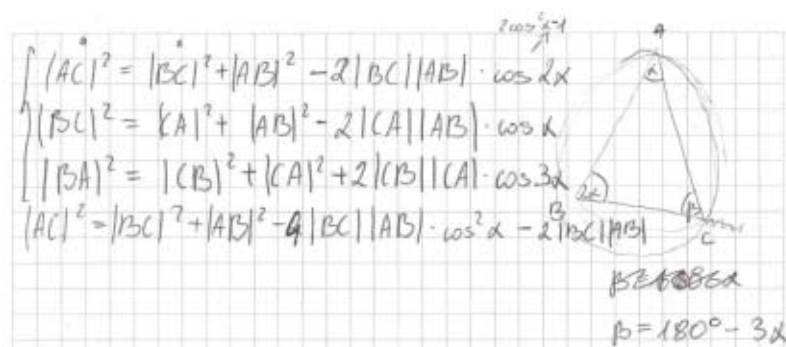 2cos²α-1
|AC|² = |BC|² + |AB|² - 2|BC||AB| · cos 2α
|BC|² = |CA|² + |AB|² - 2|CA||AB| · cos α
|BA|² = |CB|² + |CA|² + 2|CB||CA| · cos 3α
|AC|² = |BC|² + |AB|² - 4|BC||AB| · cos² α - 2|BC||AB|
A
α
B
2α
β
C
β = 180° - 3α